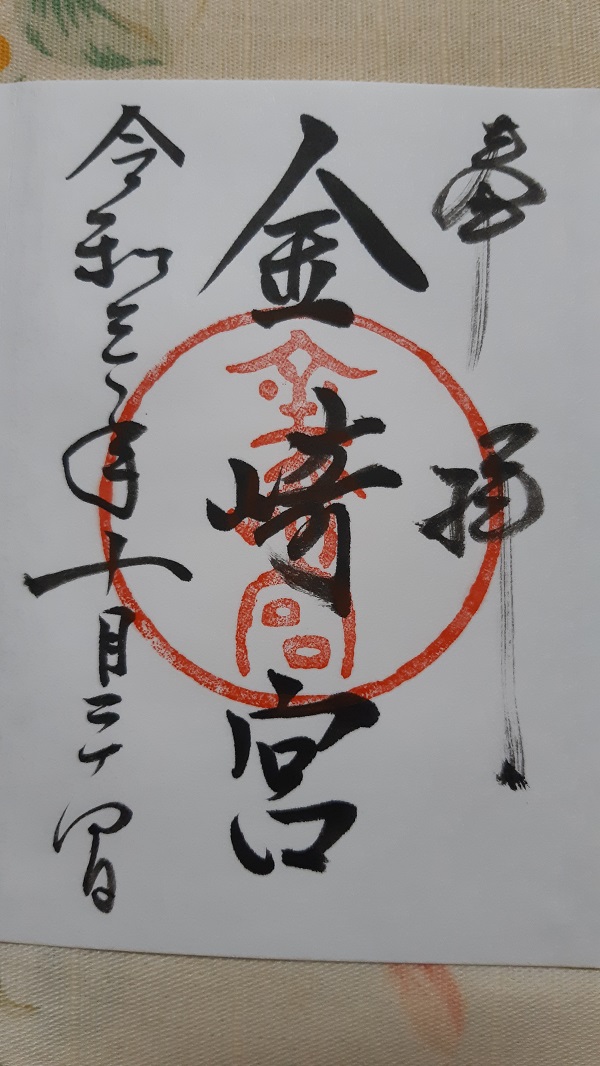 奉拝
金崎宮
金崎宮
令和三年十月二十四日